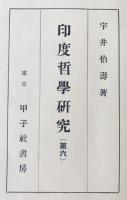 宇井伯壽著
印度哲學研究（第六）
東京 甲子社書房